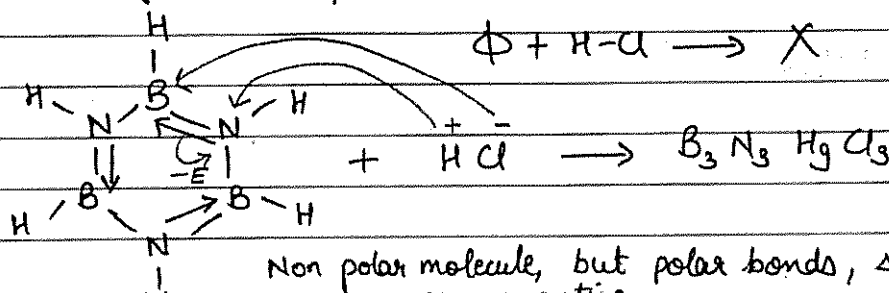 H
Φ + H-Cl ⟶ X
H B H
N N
-E + H⁺ Cl⁻ ⟶ B₃ N₃ H₉ Cl₃
H B B H
N
Non polar molecule, but polar bonds,